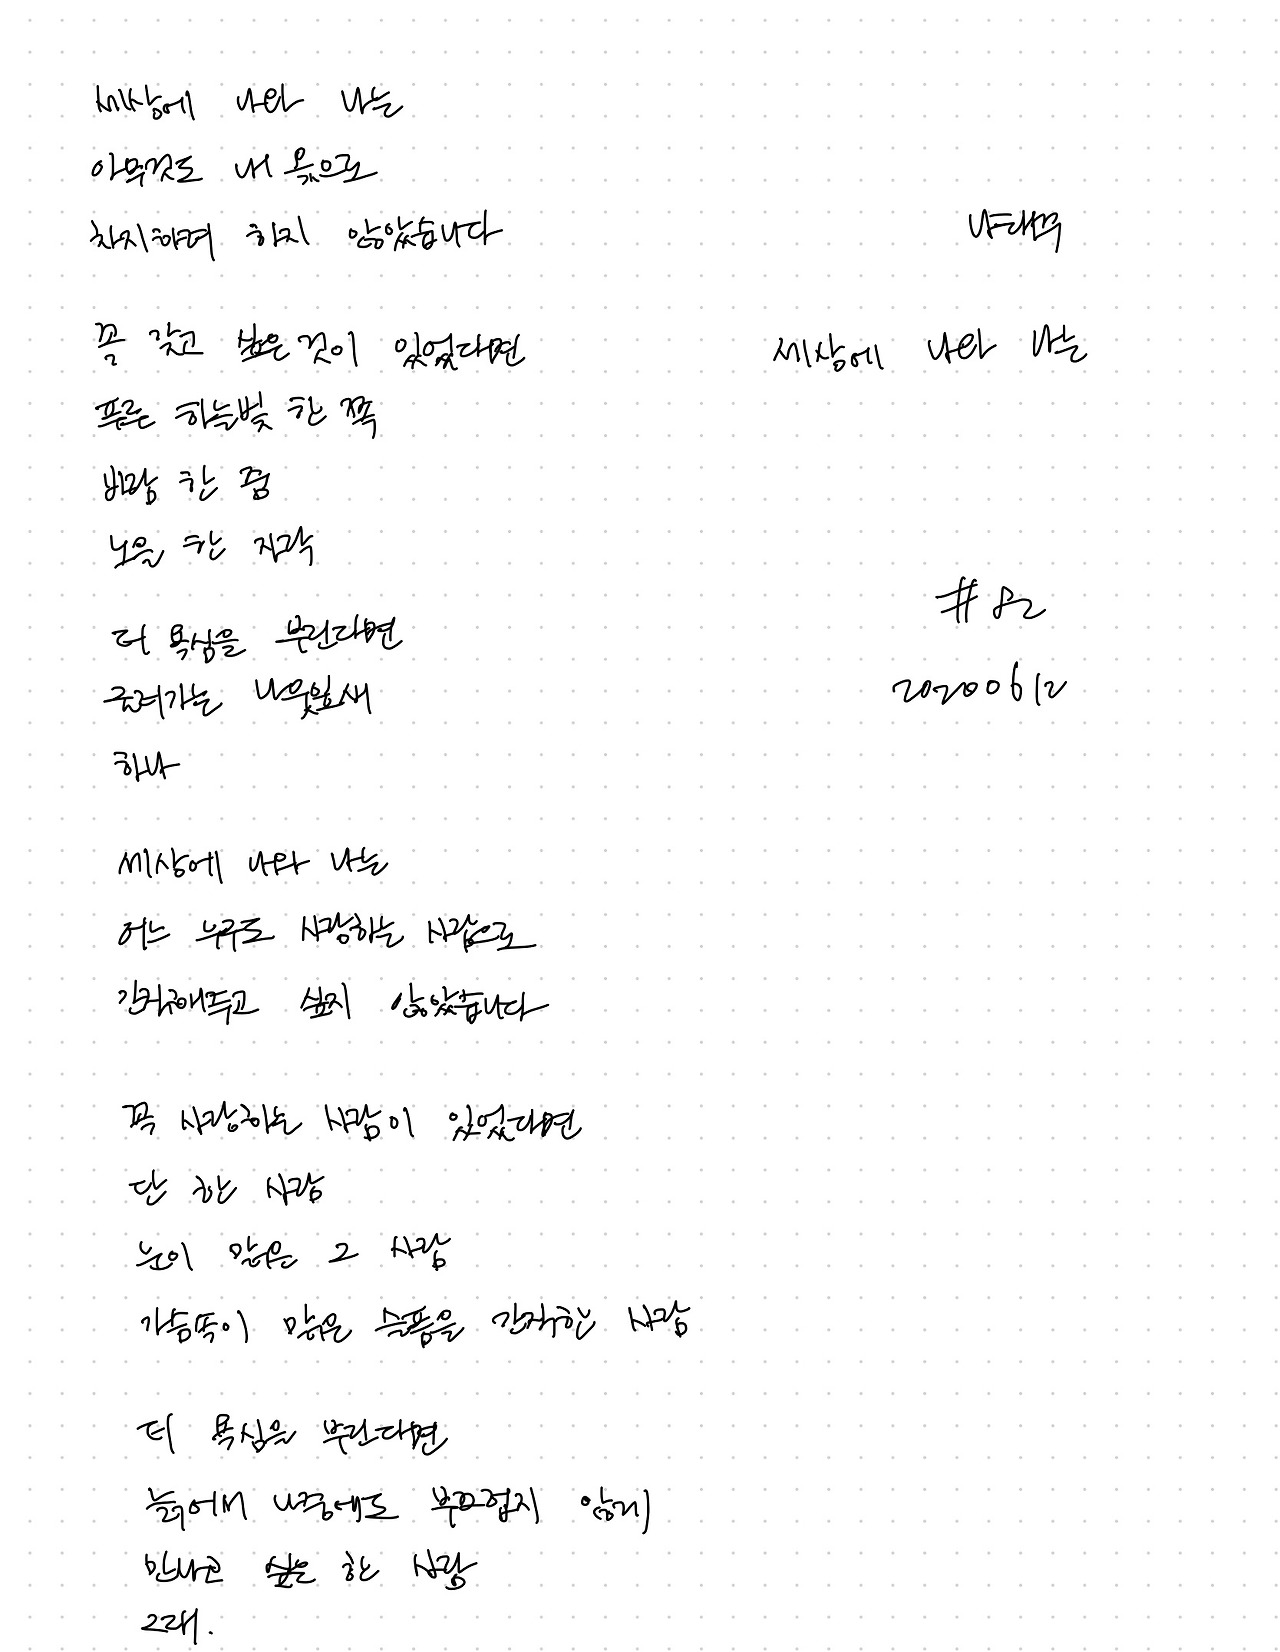 세상에 나와 나는
아무것도 내 몫으로
차지하려 하지 않았습니다
꼭 갖고 싶은 것이 있었다면
푸른 하늘빛 한 쪽
바람 한 줌
노을 한 자락
더 욕심을 부린다면
굴러가는 나뭇잎새
하나
세상에 나와 나는
어느 누구도 사랑하는 사람으로
간직해두고 싶지 않았습니다
꼭 사랑하는 사람이 있었다면
단 한 사람
눈이 맑은 그 사람
가슴속이 맑은 슬픔을 간직한 사람
더 욕심을 부린다면
늙어서 나중에도 부끄럽지 않게
만나고 싶은 한 사람
그대.
나태주
세상에 나와 나는
#82
20200612